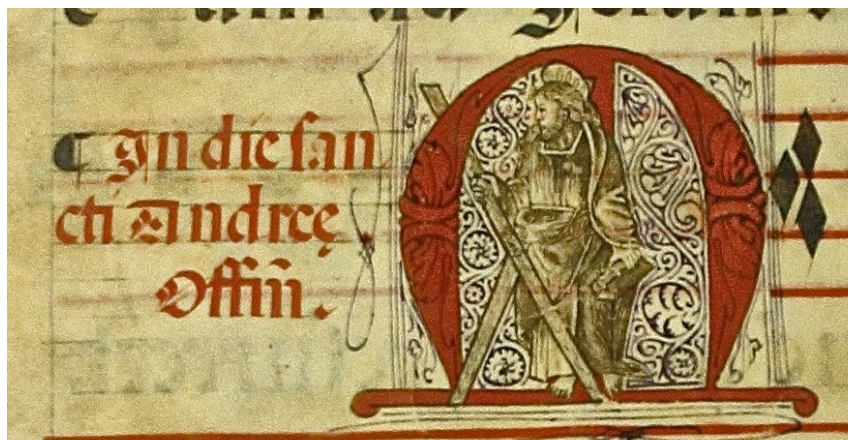 ¶ In die san
cti Andreę
Offiū.
M